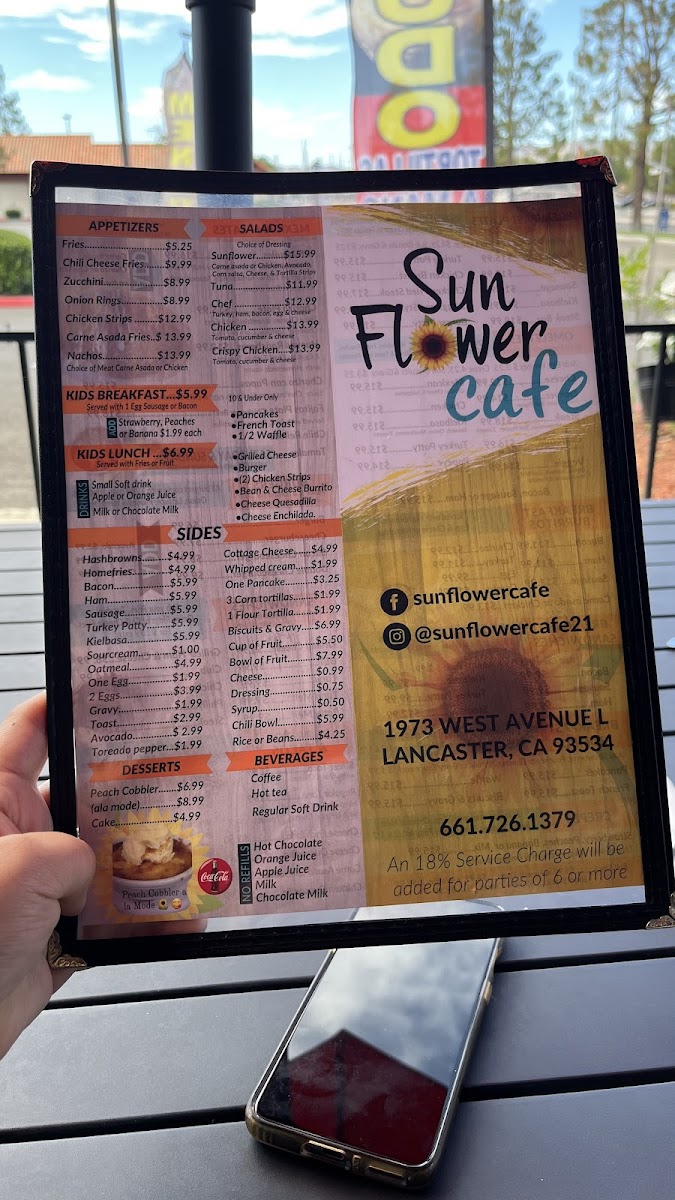 ODO
TORTILLAS
A MANO
APPETIZERS
Fries.......................$5.25
Chili Cheese Fries......$9.99
Zucchini..................$8.99
Onion Rings.............$8.99
Chicken Strips .........$12.99
Carne Asada Fries..$ 13.99
Nachos...................$13.99
Choice of Meat Carne Asada or Chicken
SALADS
Choice of Dressing
Sunflower..........$15.99
Carne asada or Chicken, Avocado,
Corn salsa, Cheese, & Tortilla Strips
Tuna................$11.99
Chef ................$12.99
Turkey, ham, bacon, egg & cheese
Chicken ............$13.99
Tomato, cucumber & cheese
Crispy Chicken....$13.99
Tomato, cucumber & cheese
KIDS BREAKFAST...$5.99
Served with 1 Egg Sausage or Bacon
ADD
Strawberry, Peaches
or Banana $1.99 each
KIDS LUNCH ...$6.99
Served with Fries or Fruit
DRINKS
Small Soft drink
Apple or Orange Juice
Milk or Chocolate Milk
10 & Under Only
•Pancakes
•French Toast
•1/2 Waffle
•Grilled Cheese
•Burger
•(2) Chicken Strips
•Bean & Cheese Burrito
•Cheese Quesadilla
•Cheese Enchilada.
SIDES
Hashbrowns..........$4.99
Homefries.............$4.99
Bacon...................$5.99
Ham.....................$5.99
Sausage................$5.99
Turkey Patty..........$5.99
Kielbasa................$5.99
Sourcream............$1.00
Oatmeal...............$4.99
One Egg...............$1.99
2 Eggs..................$3.99
Gravy...................$1.99
Toast....................$2.99
Avocado...............$ 2.99
Toreado pepper...$1.99
Cottage Cheese.......$4.99
Whipped cream.....$1.99
One Pancake.........$3.25
3 Corn tortillas......$1.99
1 Flour Tortilla.......$1.99
Biscuits & Gravy....$6.99
Cup of Fruit..........$5.50
Bowl of Fruit.........$7.99
Cheese..................$0.99
Dressing................$0.75
Syrup....................$0.50
Chili Bowl..............$5.99
Rice or Beans........$4.25
DESSERTS
Peach Cobbler......$6.99
(ala mode)............$8.99
Cake.....................$4.99
Peach Cobbler a
la Mode 🌻😋
Coca-Cola
BEVERAGES
Coffee
Hot tea
Regular Soft Drink
NO REFILLS
Hot Chocolate
Orange Juice
Apple Juice
Milk
Chocolate Milk
Sun
Flower
cafe
sunflowercafe
@sunflowercafe21
1973 WEST AVENUE L
LANCASTER, CA 93534
661.726.1379
An 18% Service Charge will be
added for parties of 6 or more